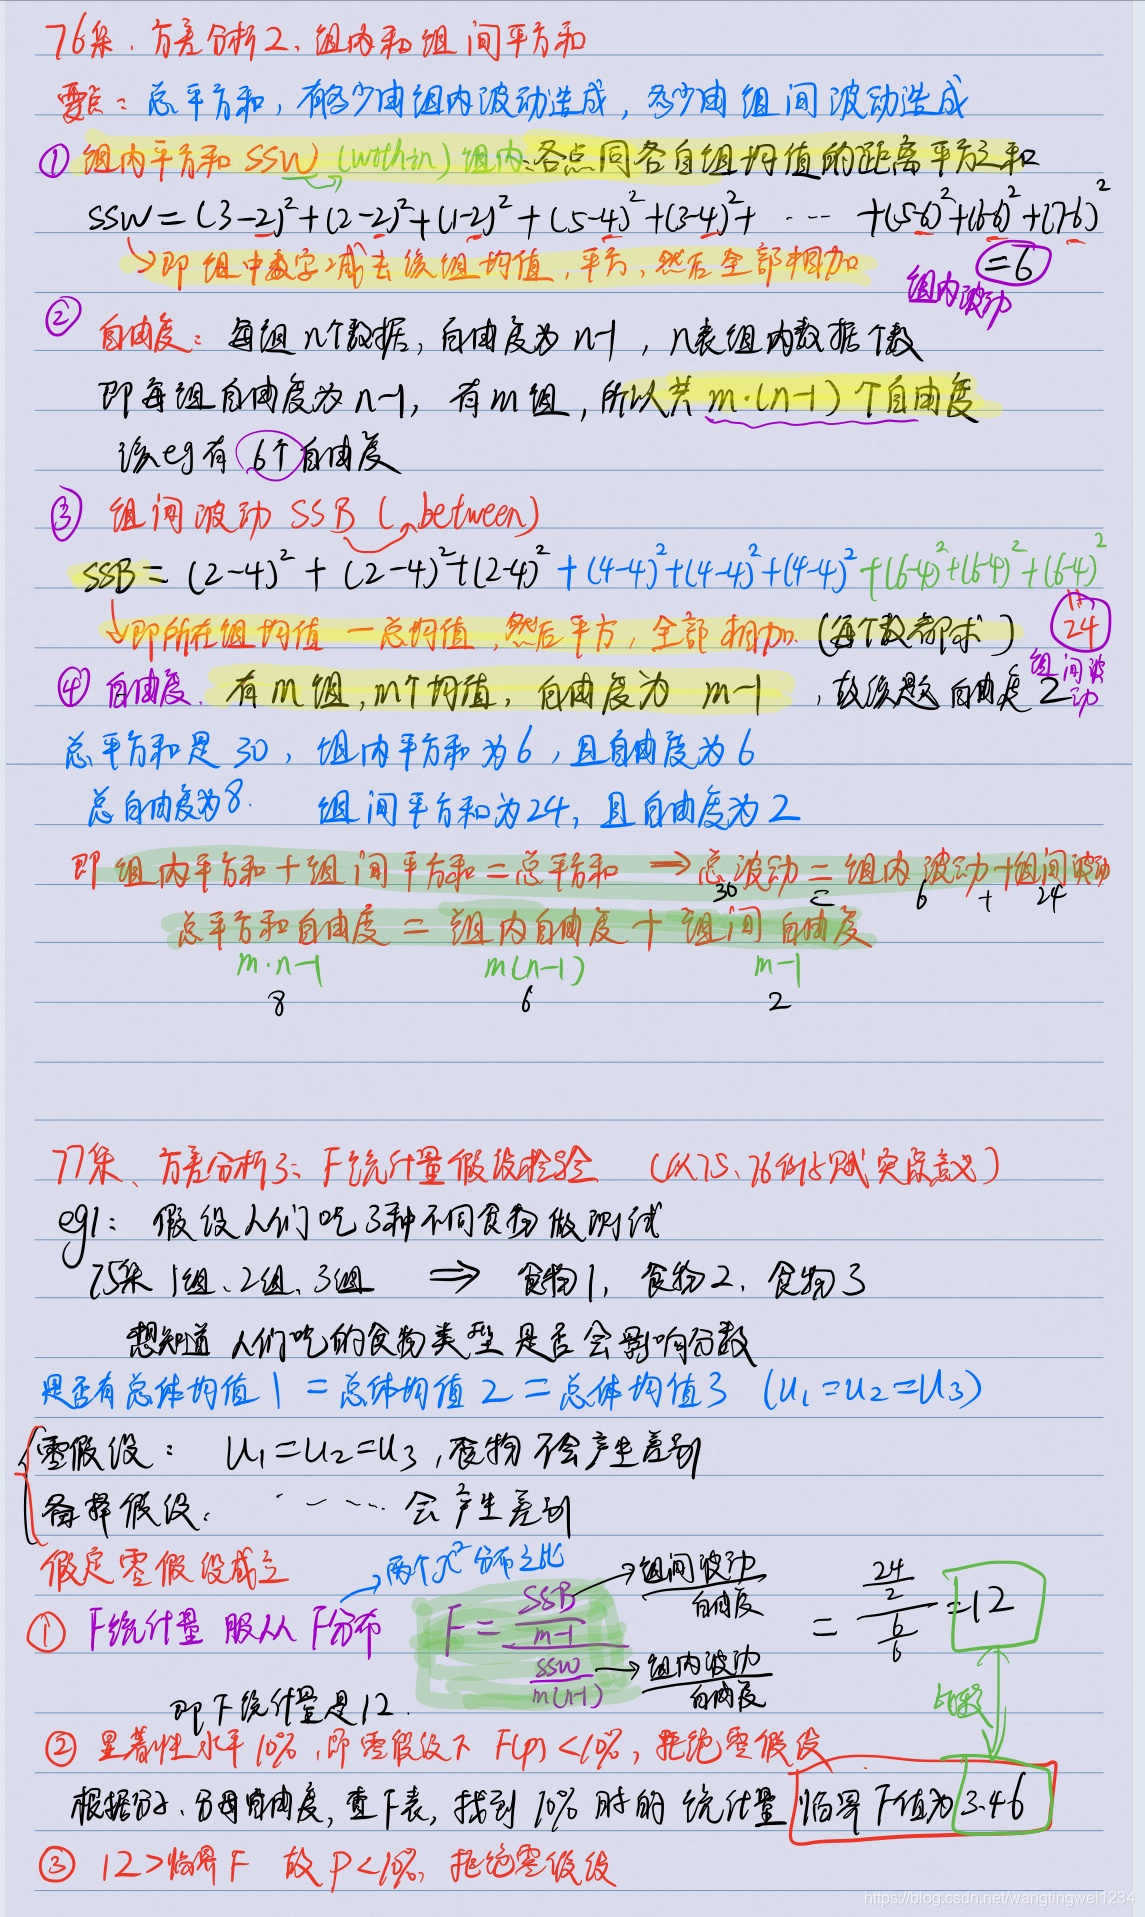 76集、方差分析2、组内和组间平方和
要点：总平方和，有多少由组内波动造成，多少由组间波动造成
① 组内平方和 SSW (within) 组内：各点同各自组均值的距离平方之和
SSW = (3-2)²+(2-2)²+(1-2)²+(5-4)²+(3-4)²+ ... +(5-6)²+(6-6)²+(7-6)²
即组中数字减去该组均值，平方，然后全部相加
=6
组内波动
② 自由度：每组n个数据，自由度为 n-1，n表组内数据个数
即每组自由度为n-1，有m组，所以共 m·(n-1)个自由度
该eg有 6个 自由度
③ 组间波动 SSB (between)
SSB = (2-4)² + (2-4)²+(2-4)²+(4-4)²+(4-4)²+(4-4)²+(6-4)²+(6-4)²+(6-4)²
即所在组均值 - 总均值，然后平方，全部相加 (每个数都求)
=24
组间波动
④ 自由度、有m组，m个均值，自由度为 m-1，故该题自由度2
总平方和是30，组内平方和为6，且自由度为6
总自由度为8. 组间平方和为24，且自由度为2
即 组内平方和+组间平方和=总平方和 ⇒ 总波动 = 组内波动+组间波动
30 = 6 + 24
总平方和自由度 = 组内自由度 + 组间自由度
m·n-1 m(n-1) m-1
8 6 2
77集、方差分析3：F统计量假设检验 (从75、76例子赋实际意义)
eg1：假设人们吃3种不同食物做测试
75集 1组、2组、3组 ⇒ 食物1，食物2，食物3
想知道人们吃的食物类型是否会影响分数
是否有总体均值1 = 总体均值2 = 总体均值3 (u₁=u₂=u₃)
零假设： u₁=u₂=u₃，食物不会产生差别
备择假设： ... 会产生差别
假定零假设成立
两个x²分布之比
① F统计量 服从 F分布 F = (SSB/(m-1)) / (SSW/(m(n-1))) = (24/2) / (6/6) = 12
组间波动/自由度
组内波动/自由度
即 F统计量是12.
比较
② 显著性水平10%，即零假设下 F(p)<10%，拒绝零假设
根据分子、分母自由度，查F表，找到10%时的统计量 临界F值为3.46
③ 12>临界F 故P<10%，拒绝零假设
https://blog.csdn.net/wangtingwei1234